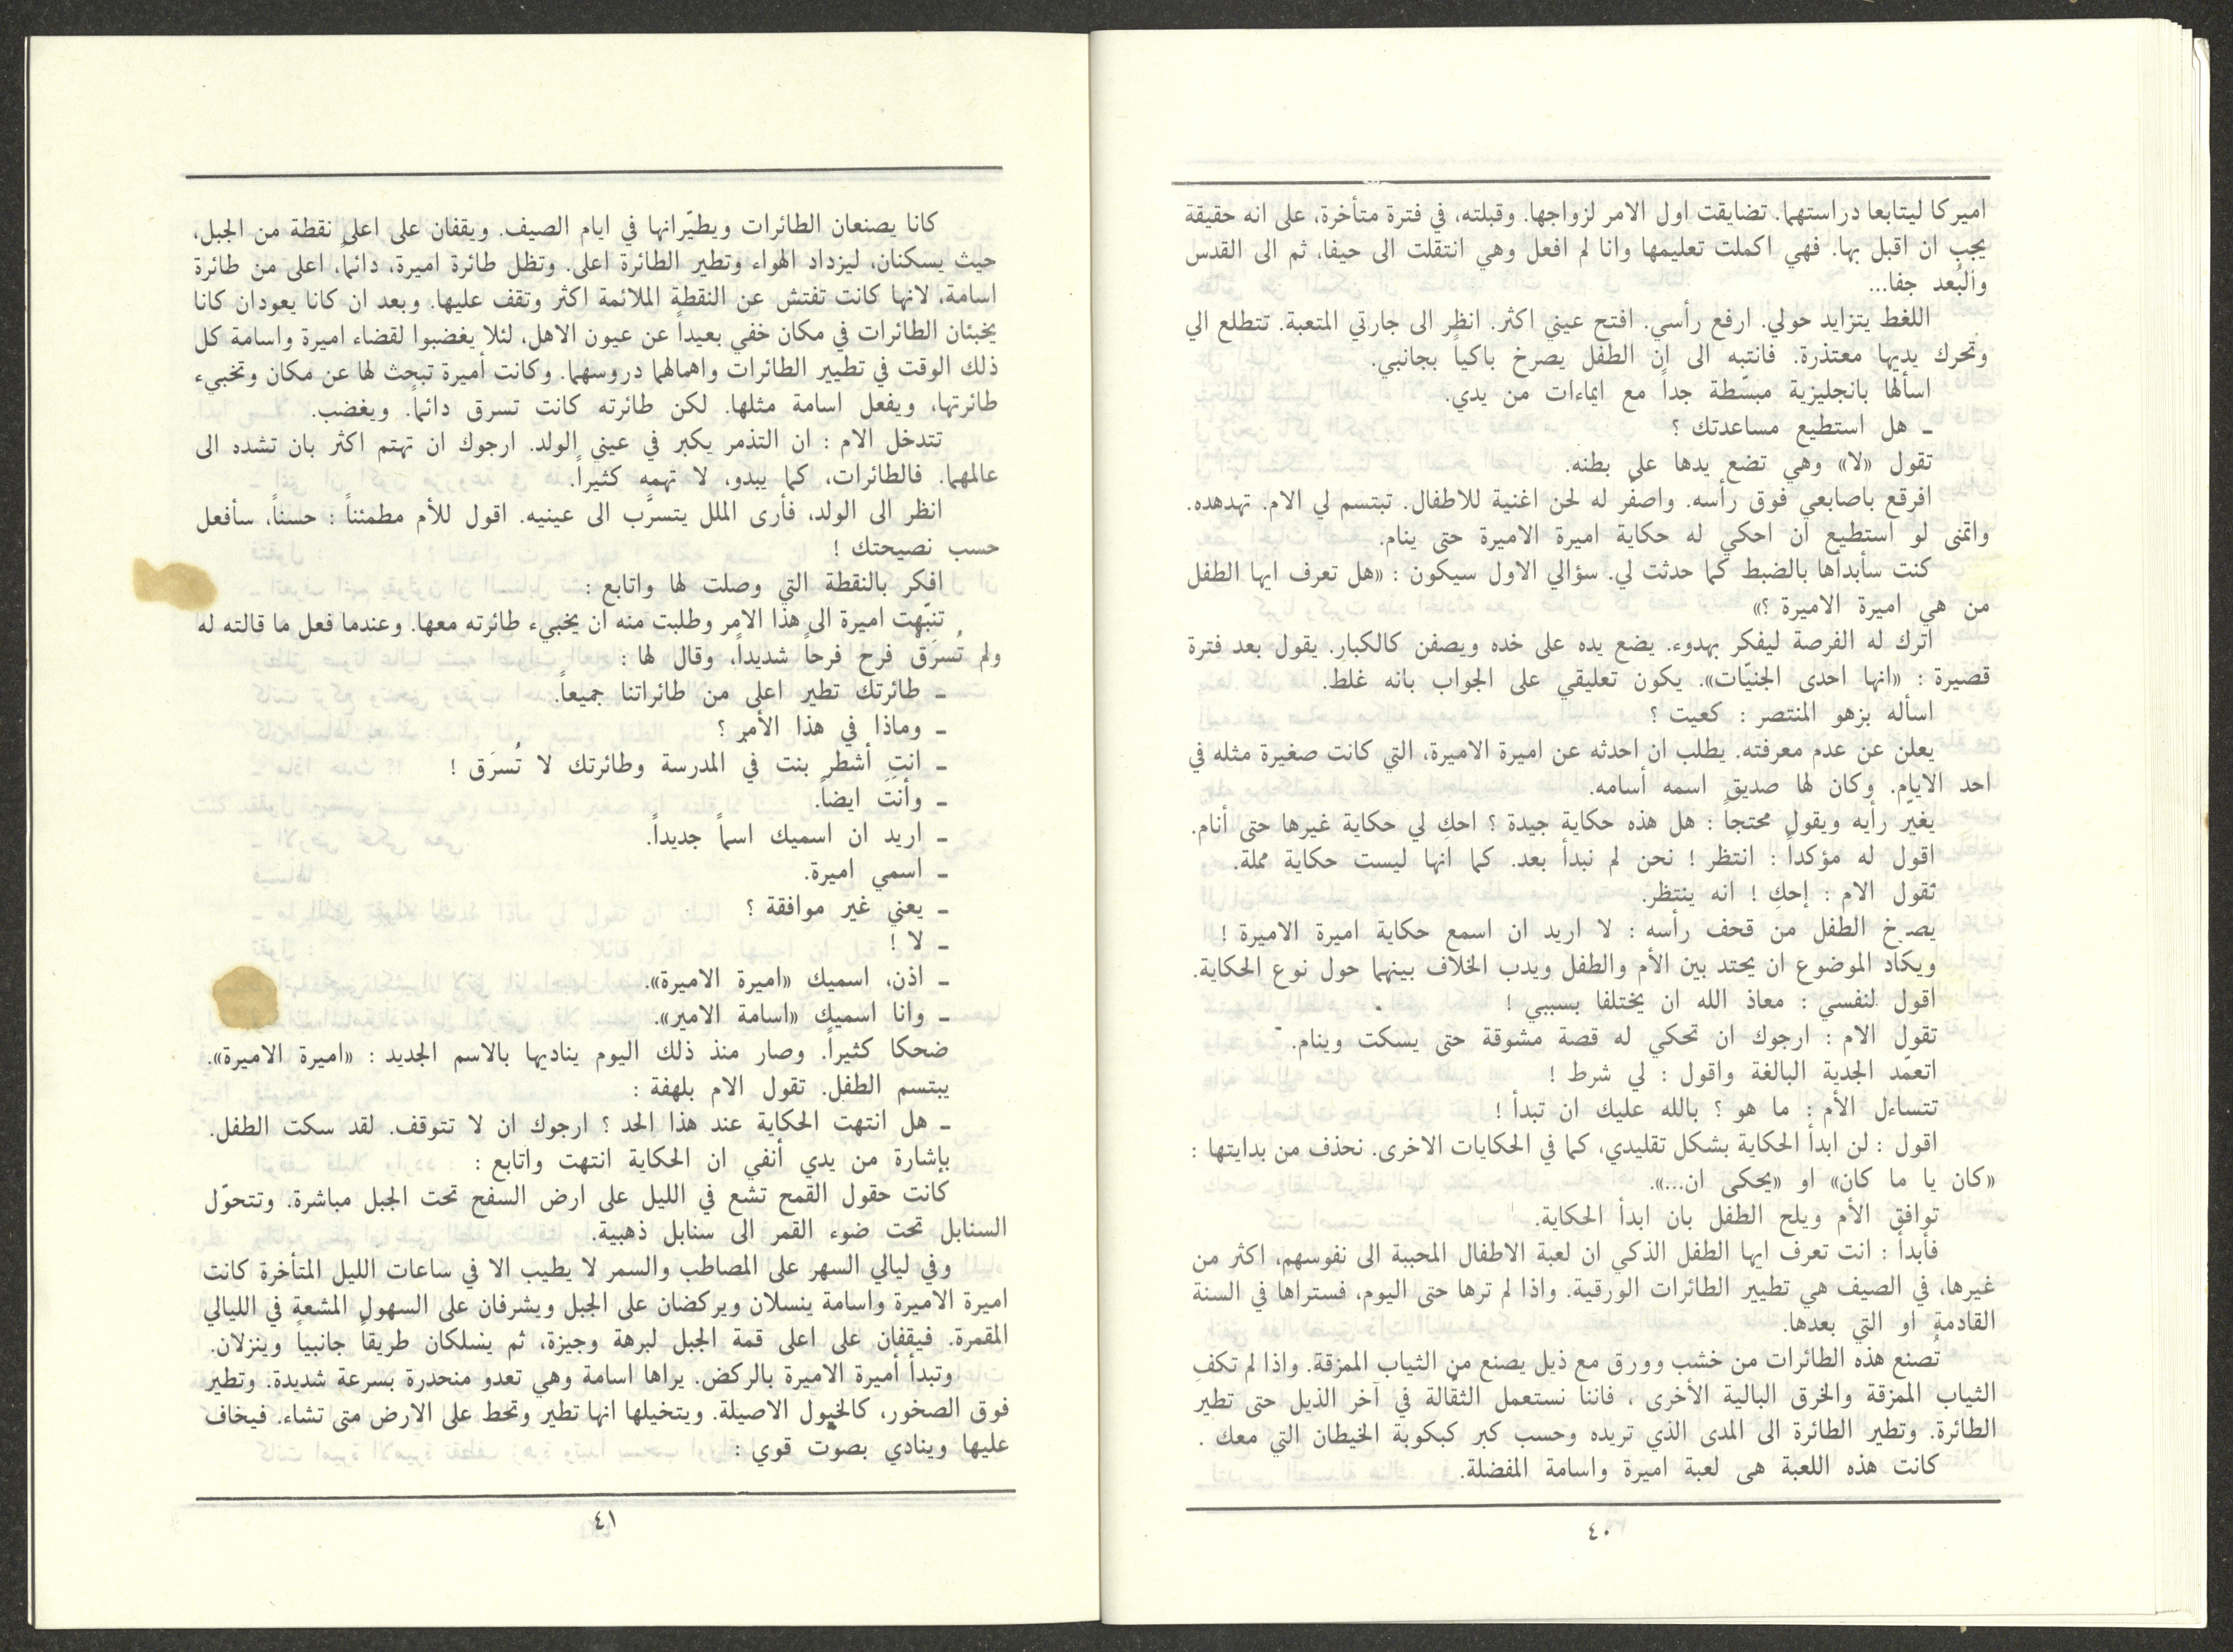 اميركا ليتابعا دراستهما. تضايقت اول الامر لزواجها. وقبلته، في فترة متأخرة، على انه حقيقة
يجب ان اقبل بها. فهي اكملت تعليمها وانا لم افعل وهي انتقلت الى حيفا، ثم الى القدس
والبُعد جفا...
اللغط يتزايد حولي. ارفع رأسي. افتح عيني اكثر. انظر الى جارتي المتعبة. تتطلع الي
وتحرك يديها معتذرة. فانتبه الى ان الطفل يصرخ باكياً بجانبي.
اسألها بانجليزية مبسّطة جداً مع ايماءات من يدي.
ـ هل استطيع مساعدتك ؟
تقول «لا» وهي تضع يدها على بطنه.
افرقع باصابعي فوق رأسه. واصفّر له لحن اغنية للاطفال. تبتسم لي الام. تهدهده.
واتمنى لو استطيع ان احكي له حكاية اميرة الاميرة حتى ينام.
كنت سأبدأها بالضبط كما حدثت لي. سؤالي الاول سيكون : «هل تعرف ايها الطفل
من هي اميرة الاميرة ؟»
اترك له الفرصة ليفكر بهدوء. يضع يده على خده ويصفن كالكبار. يقول بعد فترة
قصيرة : «انها احدى الجنيّات». يكون تعليقي على الجواب بانه غلط.
اسأله بزهو المنتصر : كعيت ؟
يعلن عن عدم معرفته. يطلب ان احدثه عن اميرة الاميرة، التي كانت صغيرة مثله في
احد الايام. وكان لها صديق اسمه أسامه.
يغيّر رأيه ويقول محتجاً : هل هذه حكاية جيدة ؟ احكِ لي حكاية غيرها حتى أنام.
اقول له مؤكداً : انتظر ! نحن لم نبدأ بعد. كما انها ليست حكاية مملة.
تقول الام : إحكِ ! انه ينتظر.
يصرخ الطفل من قحف رأسه : لا اريد ان اسمع حكاية اميرة الاميرة !
ويكاد الموضوع ان يحتد بين الأم والطفل ويدب الخلاف بينهما حول نوع الحكاية.
اقول لنفسي : معاذ الله ان يختلفا بسببي !
تقول الام : ارجوك ان تحكي له قصة مشوقة حتى يسكت وينام.
اتعمّد الجدية البالغة واقول : لي شرط !
تتساءل الأم : ما هو ؟ بالله عليك ان تبدأ !
اقول : لن ابدأ الحكاية بشكل تقليدي، كما في الحكايات الاخرى. نحذف من بدايتها :
«كان يا ما كان» او «يحكى ان...».
توافق الأم ويلح الطفل بان ابدأ الحكاية.
فأبدأ : انت تعرف ايها الطفل الذكي ان لعبة الاطفال المحببة الى نفوسهم، اكثر من
غيرها، في الصيف هي تطيير الطائرات الورقية. واذا لم ترها حتى اليوم، فستراها في السنة
القادمة او التي بعدها.
تُصنع هذه الطائرات من خشب وورق مع ذيل يصنع من الثياب الممزقة. واذا لم تكفِ
الثياب الممزقة والخرق البالية الأخرى ، فاننا نستعمل الثقّالة في آخر الذيل حتى تطير
الطائرة. وتطير الطائرة الى المدى الذي تريده وحسب كبر كبكوبة الخيطان التي معك .
كانت هذه اللعبة هى لعبة اميرة واسامة المفضلة.
٤٠
كانا يصنعان الطائرات ويطيّرانها في ايام الصيف. ويقفان على اعلى نقطة من الجبل،
حيث يسكنان، ليزداد الهواء وتطير الطائرة اعلى. وتظل طائرة اميرة، دائماً، اعلى من طائرة
اسامة، لانها كانت تفتش عن النقطة الملائمة اكثر وتقف عليها. وبعد ان كانا يعودان كانا
يخبئان الطائرات في مكان خفي بعيداً عن عيون الاهل، لئلا يغضبوا لقضاء اميرة واسامة كل
ذلك الوقت في تطيير الطائرات واهمالهما دروسهما. وكانت أميرة تبحث لها عن مكان وتخبيء
طائرتها، ويفعل اسامة مثلها. لكن طائرته كانت تسرق دائماً. ويغضب.
تتدخل الام : ان التذمر يكبر في عيني الولد. ارجوك ان تهتم اكثر بان تشده الى
عالمهما. فالطائرات، كما يبدو، لا تهمه كثيراً.
انظر الى الولد، فأرى الملل يتسرّب الى عينيه. اقول للأم مطمئناً : حسناً، سأفعل
حسب نصيحتك !
افكر بالنقطة التي وصلت لها واتابع :
تنبّهت اميرة الى هذا الامر وطلبت منه ان يخبيء طائرته معها. وعندما فعل ما قالته له
ولم تُسرَقْ فرح فرحاً شديداً، وقال لها :
ـ طائرتك تطير اعلى من طائراتنا جميعاً.
ـ وماذا في هذا الأمر ؟
ـ انتِ أشطر بنت في المدرسة وطائرتك لا تُسرَق !
ـ وأنتَ ايضاً.
ـ اريد ان اسميك اسماً جديداً.
ـ اسمي اميرة.
ـ يعني غير موافقة ؟
ـ لا !
ـ اذن، اسميك «اميرة الاميرة».
ـ وانا اسميك «اسامة الامير».
ضحكا كثيراً. وصار منذ ذلك اليوم يناديها بالاسم الجديد : «اميرة الاميرة».
يبتسم الطفل. تقول الام بلهفة :
ـ هل انتهت الحكاية عند هذا الحد ؟ ارجوك ان لا تتوقف. لقد سكت الطفل.
بإشارة من يدي أنفي ان الحكاية انتهت واتابع :
كانت حقول القمح تشع في الليل على ارض السفح تحت الجبل مباشرة. وتتحوّل
السنابل تحت ضوء القمر الى سنابل ذهبية.
وفي ليالي السهر على المصاطب والسمر لا يطيب الا في ساعات الليل المتأخرة كانت
اميرة الاميرة واسامة ينسلان ويركضان على الجبل ويشرفان على السهول المشعة في الليالي
المقمرة. فيقفان على اعلى قمة الجبل لبرهة وجيزة، ثم يسلكان طريقاً جانبياً وينزلان.
وتبدأ أميرة الاميرة بالركض. يراها اسامة وهي تعدو منحدرة بسرعة شديدة. وتطير
فوق الصخور، كالخيول الاصيلة. ويتخيلها انها تطير وتحط على الارض متى تشاء. فيخاف
عليها وينادي بصوت قوي :
٤١